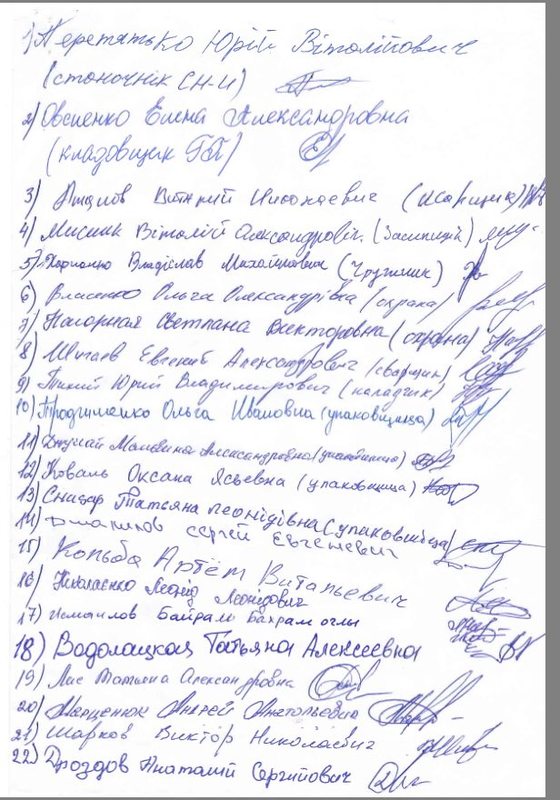 1) Перетятько Юрій Віталійович
(станочнік СН-И)
2) Овсиенко Елена Александровна
(кладовщик ГП)
3) Виталий Николаевич
4) Мисник Віталій Олександрович (Засипщик)
5) Владіслав Михайлович (Грузчик)
6) Власенко Ольга Олександрівна (охрана)
7) Нагорная Светлана Викторовна (охрана)
8) Евгений Александрович (сварщик)
9) Тикий Юрий Владимирович (наладчик)
10) Ольга Ивановна (упаковщица)
11) Александровна (упаковщица)
12) Коваль Оксана (упаковщица)
13) Сницар Татьяна Леонідівна (упаковшица)
14) Сергей Евгеневич
15) Копыба Артём Витальевич
16) Николаенко Леонід Леонідович
17) Исмаилов Байрам Бахрам оглы
18) Водолацкая Татьяна Алексеевна
19) Лис Татьяна Александровна
20) Марценюк Андрей Анатольевич
21) Шарков Виктор Николаевич
22) Дроздов Анатолій Сергійович